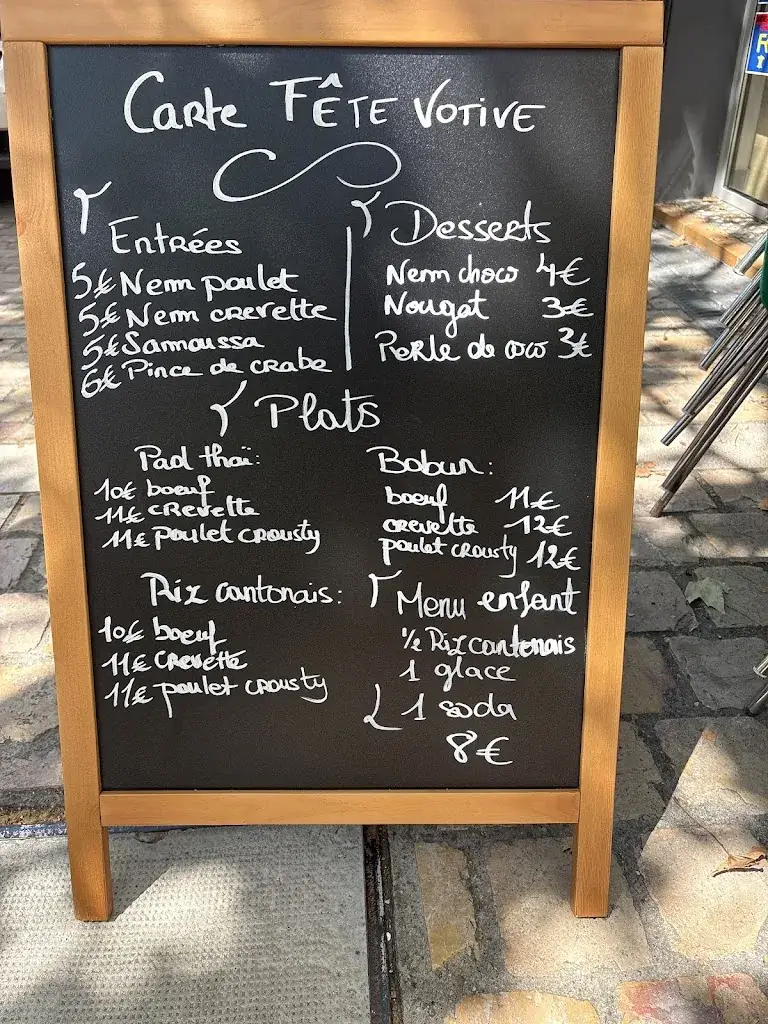 Carte Fête Votive
Entrées
5€ Nem poulet
5€ Nem crevette
5€ Samoussa
6€ Pince de crabe
Desserts
Nem choco 4€
Nougat 3€
Perle de coco 3€
Plats
Pad thaï:
10€ boeuf
11€ crevette
11€ poulet crousty
Bobun:
boeuf 11€
crevette 12€
poulet crousty 12€
Riz cantonais:
10€ boeuf
11€ crevette
11€ poulet crousty
Menu enfant
1/2 Riz cantonais
1 glace
1 soda
8€